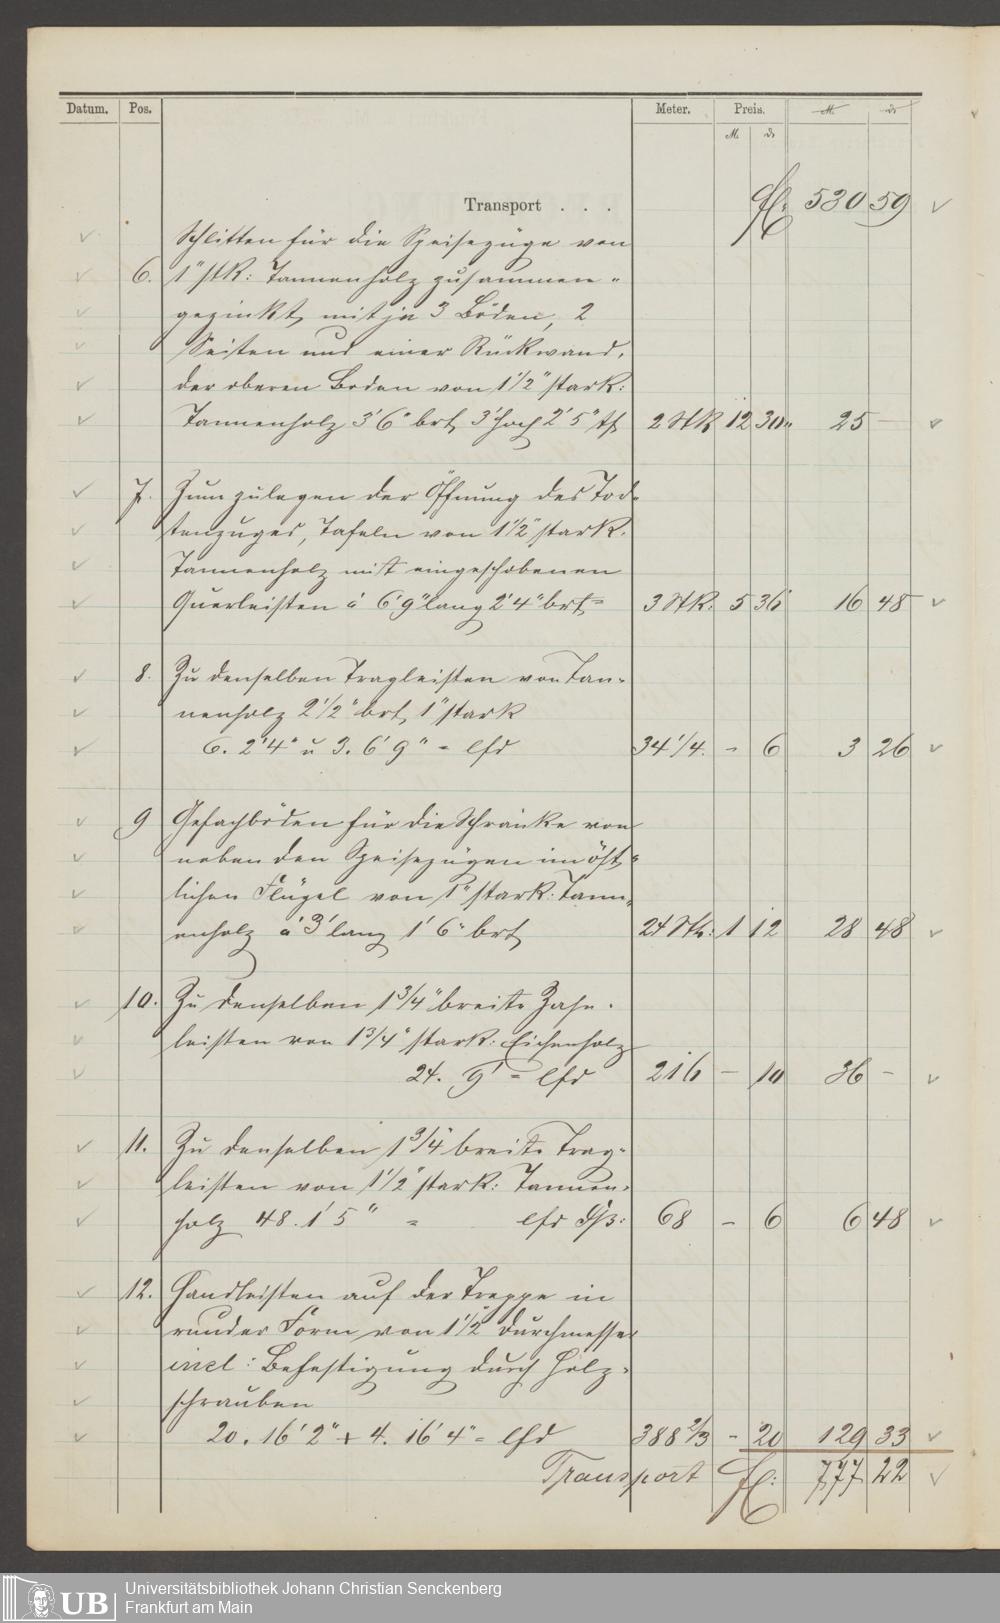 Datum. Pos. Meter. Preis. M. ₰
M. ₰
Transport . . . fl: 530 59
Schlitten für die Speisezüge von
6. 1" stk: Tannenholz zusammen„
gezinkt, mit je 3 Böden, 2
Seiten und einer Rückwand,
der oberen Boden von 1 1/2" stark:
Tannenholz 3'6" brt, 3' hoch 2'5" tf 2 Stk 12 30„ 25 —
7. Zum zulegen der Öffnung des Tod-
tenzuges, Tafeln von 1 1/2" stark.
Tannenholz mit eingeschobenen
Querleisten á 6'9" lang 2'4" brt = 3 Stk. 5 36 16 48
8. Zu denselben Tragleisten von Tan-
nenholz 2 1/2" brt, 1" stark
6. 2'4" u 3. 6'9" = lfd 34 1/4. - 6 3 26
9 Gefachböden für die Schränke von
neben den Speisezügen im öst-
lichen Flügel von 1" stark: Tann„
enholz á 3' lang 1'6" brt 24 Stk: 1 12 28 48
10. Zu denselben 1 3/4" breite Zahn-
leisten von 1 3/4" stark: Eichenholz
24. 9' = lfd 216 — 10 36 —
11. Zu denselben 1 3/4" breite Trag-
leisten von 1 1/2" stark: Tannen-
holz 48. 1'5" = lfd Fß: 68 — 6 6 48
12. Handleisten auf der Treppe in
runder Form von 1 1/2" Durchmesser
incl: Befestigung durch Holz-
schrauben
20. 16'2" + 4. 16'4" = lfd 388 2/3 - 20 129 33
Transport fl: 777 22
UB Universitätsbibliothek Johann Christian Senckenberg
Frankfurt am Main